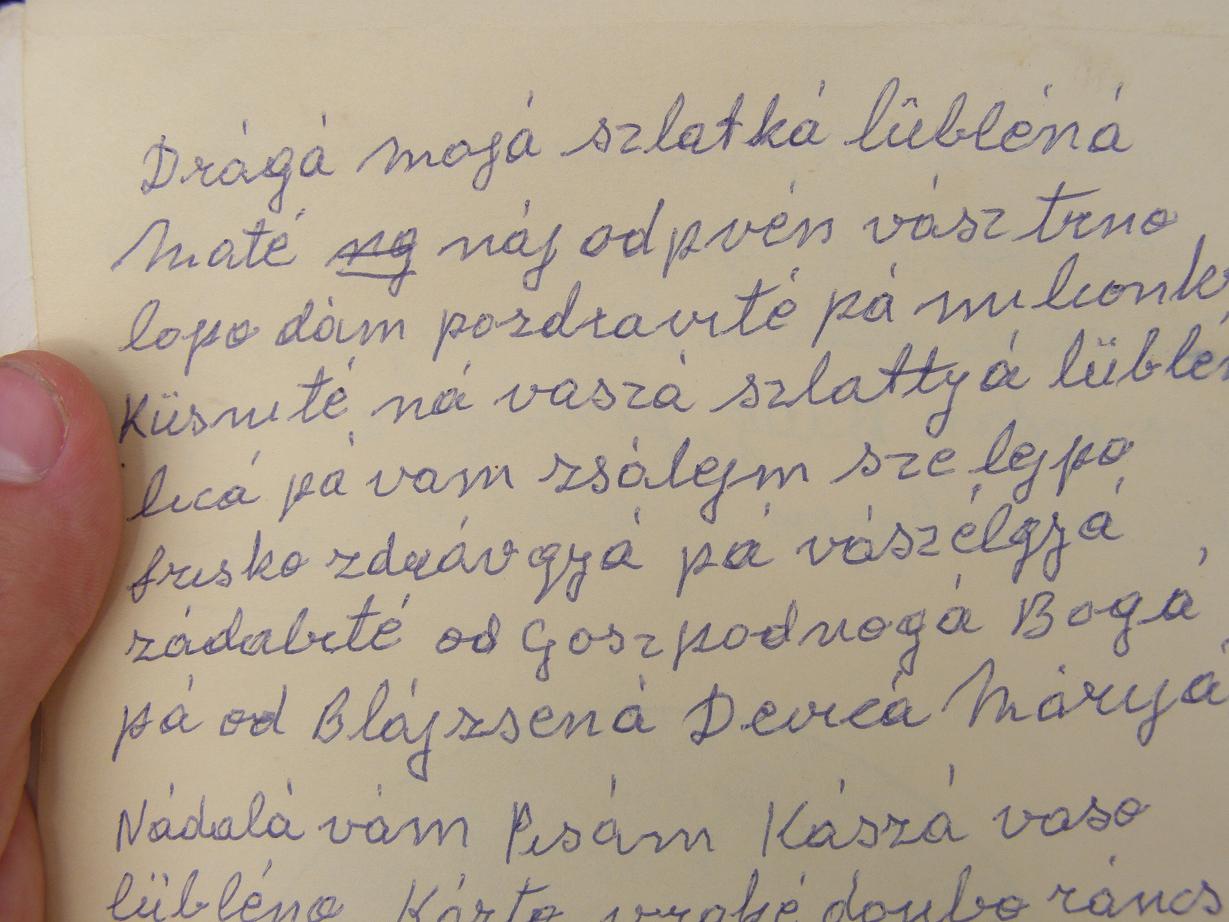 Drágá mojá szlatká lübléná
Maté ng náj odpvén vász trno
lopo dám pozdravité pá milionkr
Küsnité ná vaszá szlattyá lüblén
licá pá vam zsálejm sze lejpo
frisko zdrávgyá pá vászélgyá
zádabité od Goszpodnogá Bogá,
pá od Blájzsená Devicá Máriyá
Nádalá vám Pisám Kászá vaso
lübléno Kárto vraké doubo ráncs